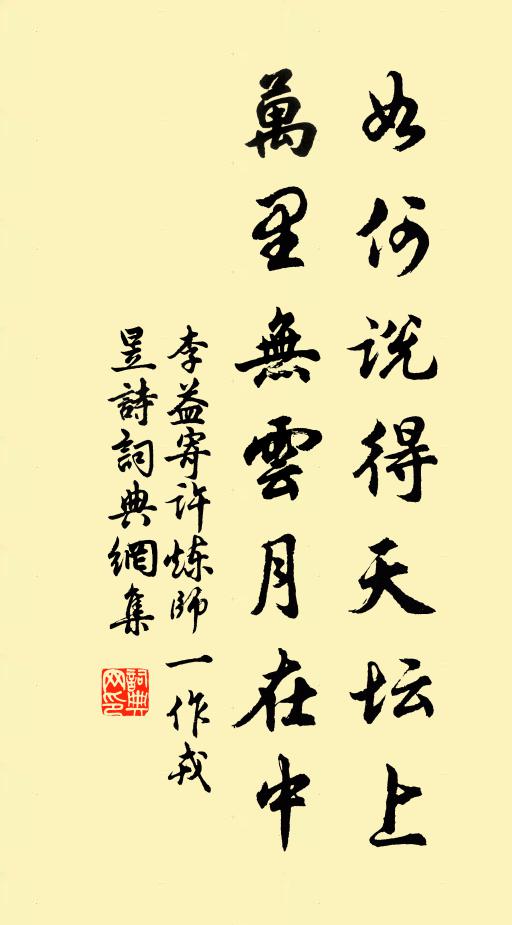 如何说得天坛上
萬里無雲月在中
李益寄许炼師 一作戎
昱詩詞典網集
詞典网印